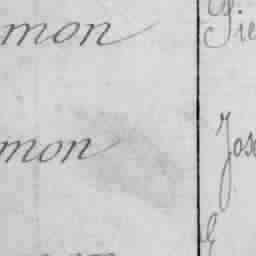 mon
Pie
mon
Jos